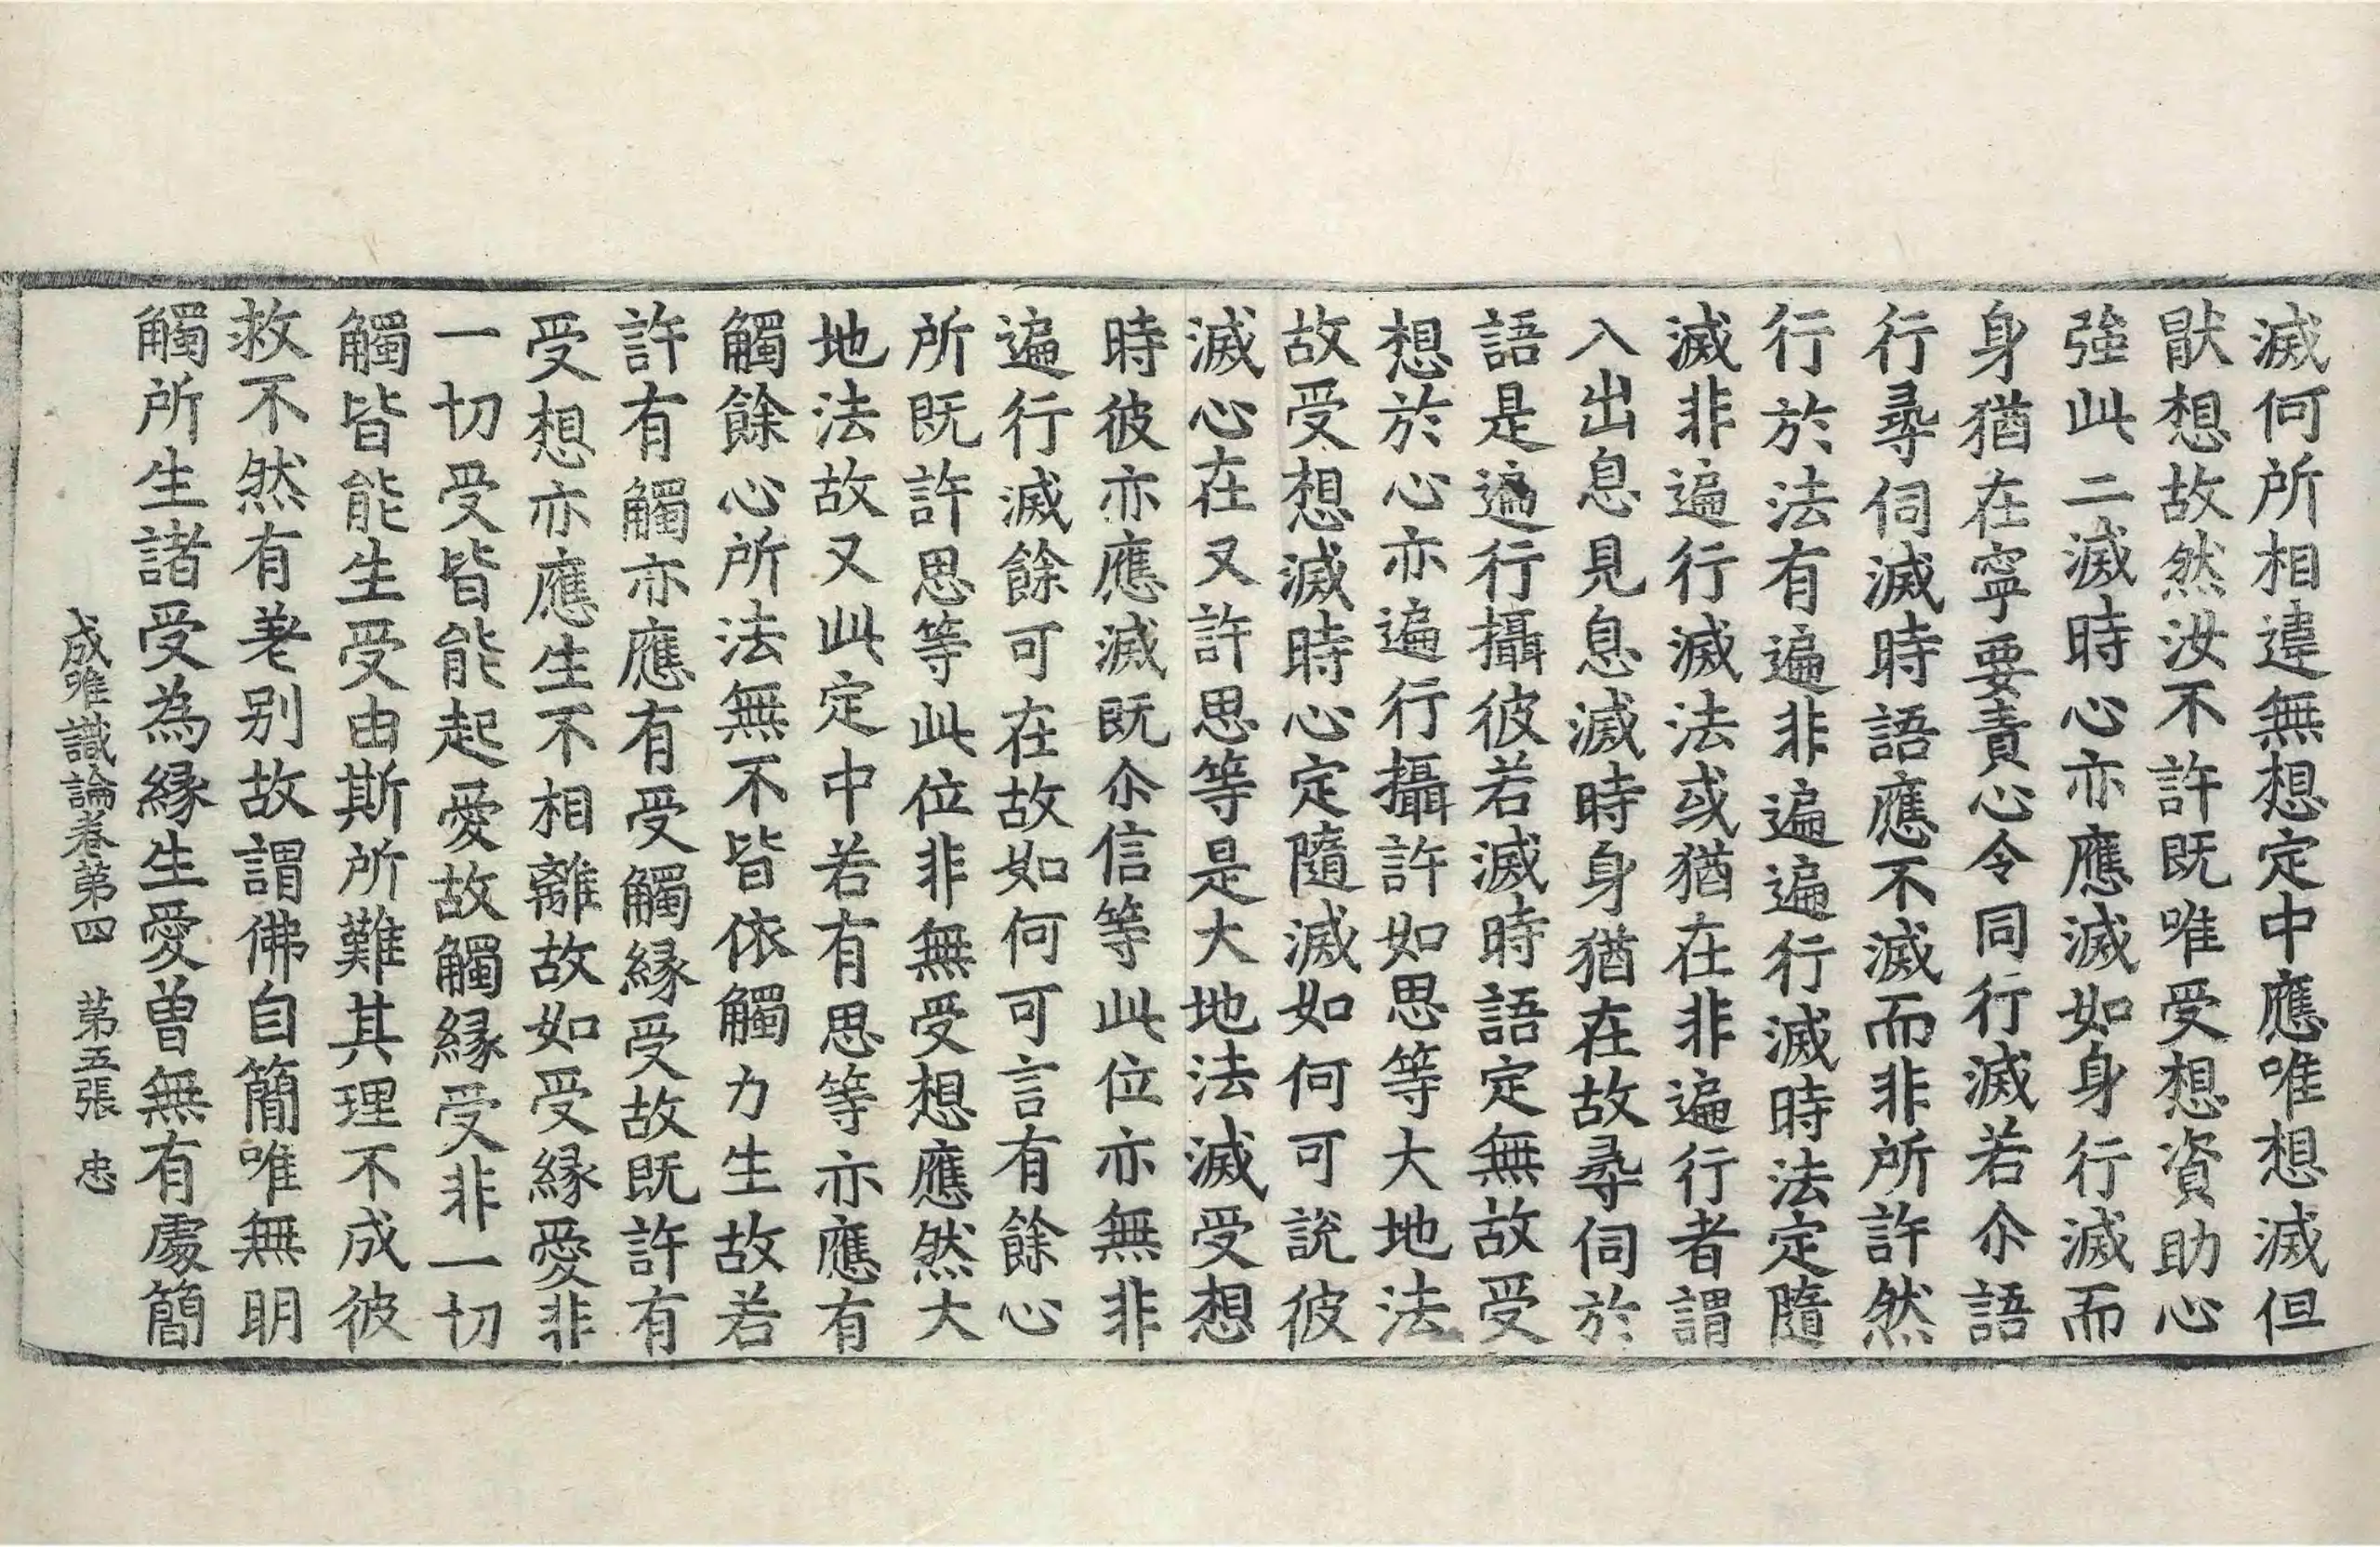 滅何所相違無想定中應唯想滅但
猒想故然汝不許既唯受想資助心
強此二滅時心亦應滅如身行滅而
身猶在寧要責心令同行滅若尒語
行尋伺滅時語應不滅而非所許然
行於法有遍非遍遍行滅時法定隨
滅非遍行滅法或猶在非遍行者謂
入出息見息滅時身猶在故尋伺於
語是遍行攝彼若滅時語定無故受
想於心亦遍行攝許如思等大地法
故受想滅時心定隨滅如何可說彼
滅心在又許思等是大地法滅受想
時彼亦應滅既尒信等此位亦無非
遍行滅餘可在故如何可言有餘心
所既許思等此位非無受想應然大
地法故又此定中若有思等亦應有
觸餘心所法無不皆依觸力生故若
許有觸亦應有受觸緣受故既許有
受想亦應生不相離故如受緣愛非
一切受皆能起愛故觸緣受非一切
觸皆能生受由斯所難其理不成彼
救不然有差別故謂佛自簡唯無明
觸所生諸受為緣生愛曾無有處簡
成唯識論卷第四　第五張　忠